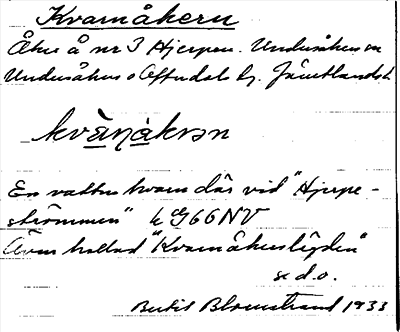 Kvarnåkern
Åker å nr 3 Hjerpen. Undersåkers sn
Undersåkers o Offerdals tg. Jämtlands l.
kvà̱ŋàkrən
En vattenkvarn där vid "Hjerpe-
strömmen" k G66NV
Även kallad "Kvarnåkerslägden"
se d.o.
Bertil Blomstrand 1933